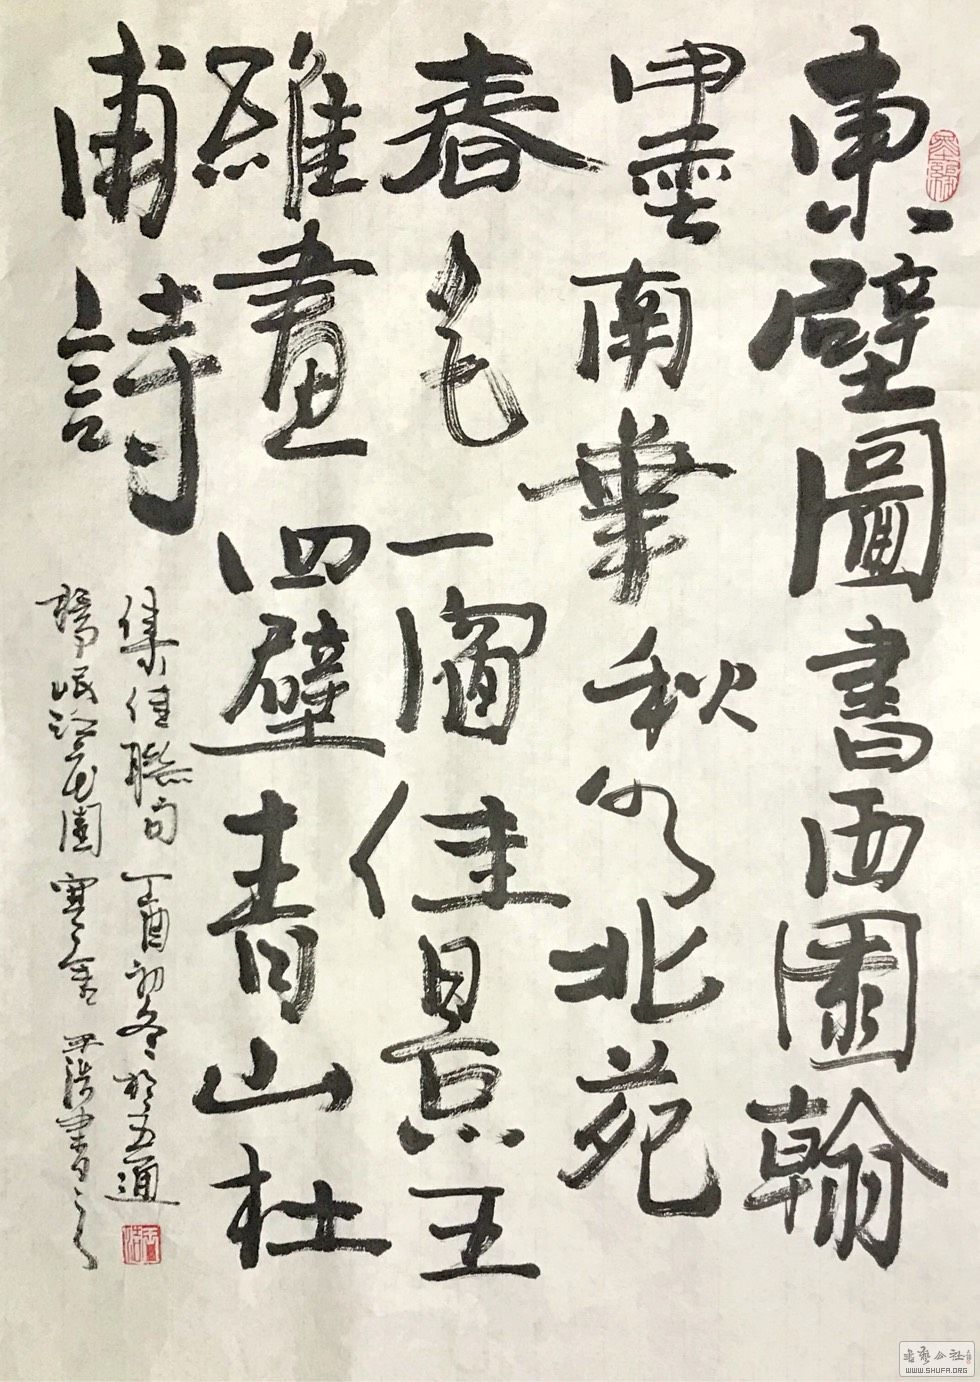 東壁圖書西園翰
墨南華秋水北苑
春色一窗佳景王
維畫四壁青山杜
甫詩
集佳聯句 丁酉初冬於五通
橋岷江花園寒舍 書之
書藝公社
WWW.SHUFA.ORG